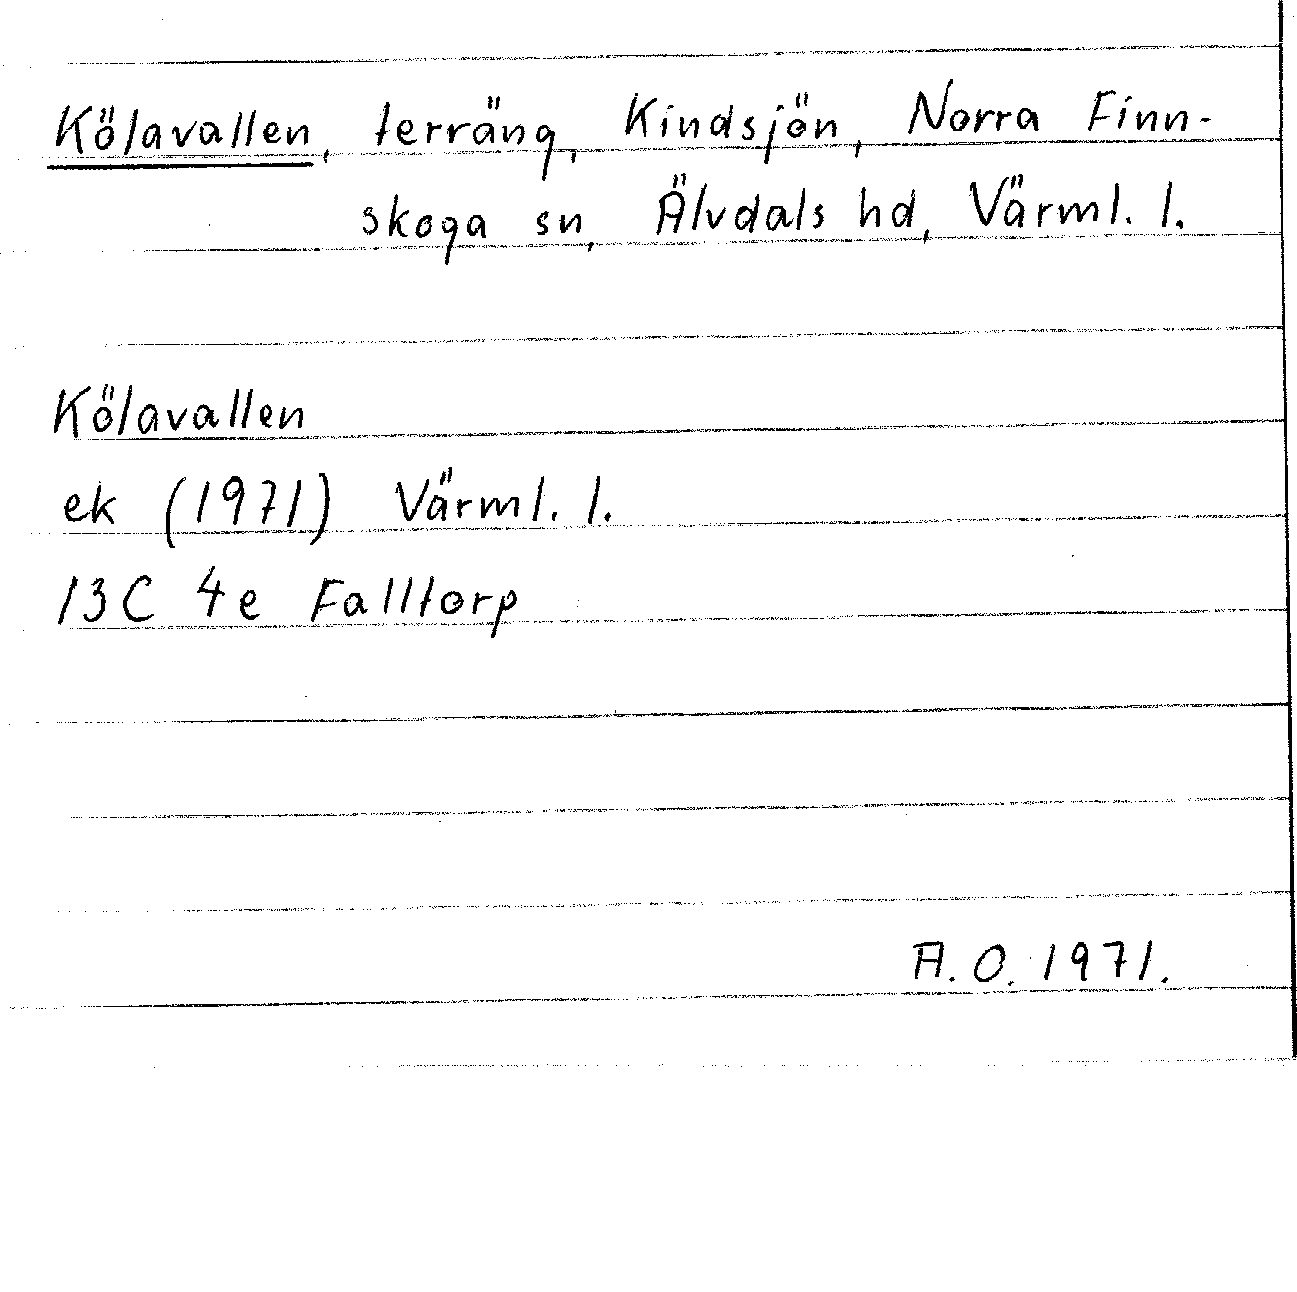 Kölavallen, terräng, Kindsjön, Norra Finn-
skoga sn, Älvdals hd, Värml. l.
Kölavallen
ek (1971) Värml. l.
13C 4e Falltorp
A.O. 1971.